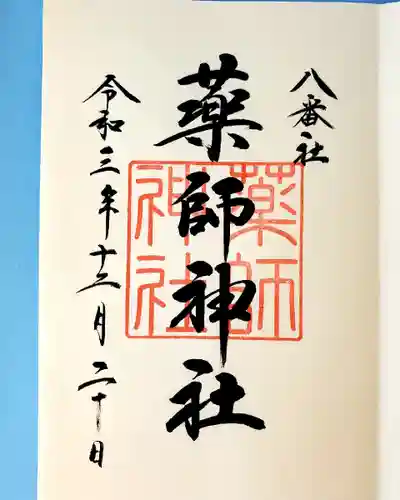 八番社
薬師神社
薬師
神社
令和三年十二月二十日